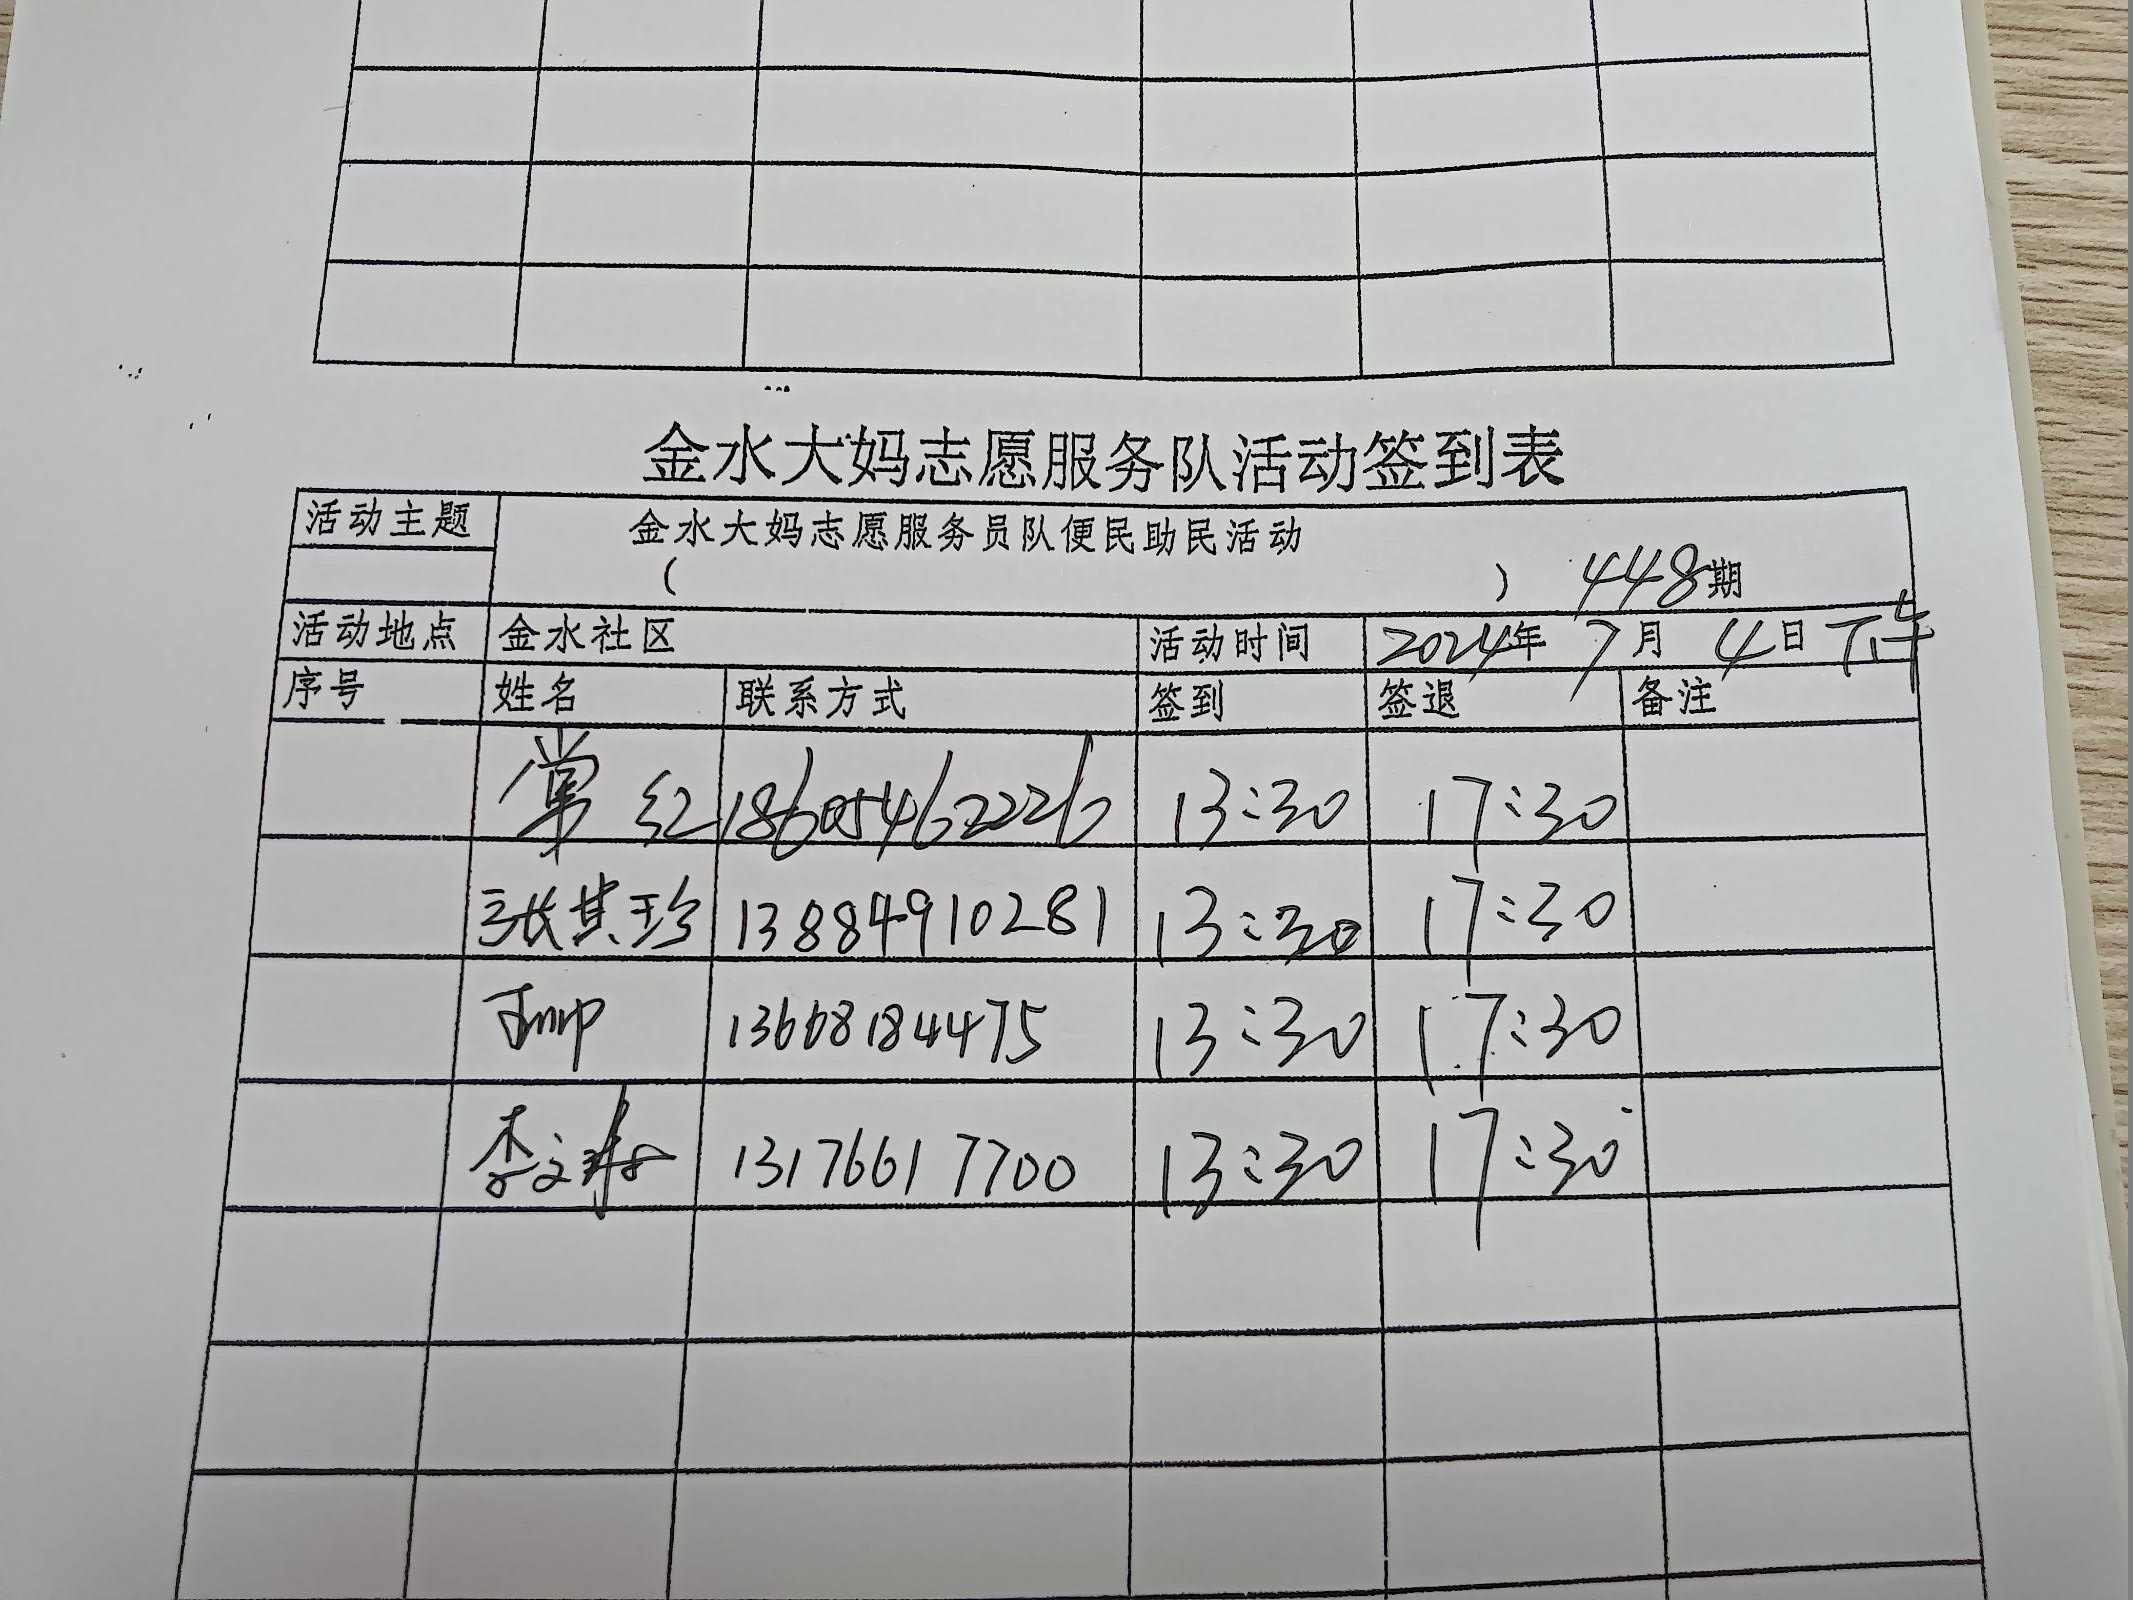 金水大妈志愿服务队活动签到表
活动主题 金水大妈志愿服务员队便民助民活动
( ) 448期
活动地点 金水社区 活动时间 2024年 7月 4日 下午
序号 姓名 联系方式 签到 签退 备注
常红 18605462226 13:30 17:30
张其珍 13884910281 13:30 17:30
13668184475 13:30 17:30
李文 13176617700 13:30 17:30